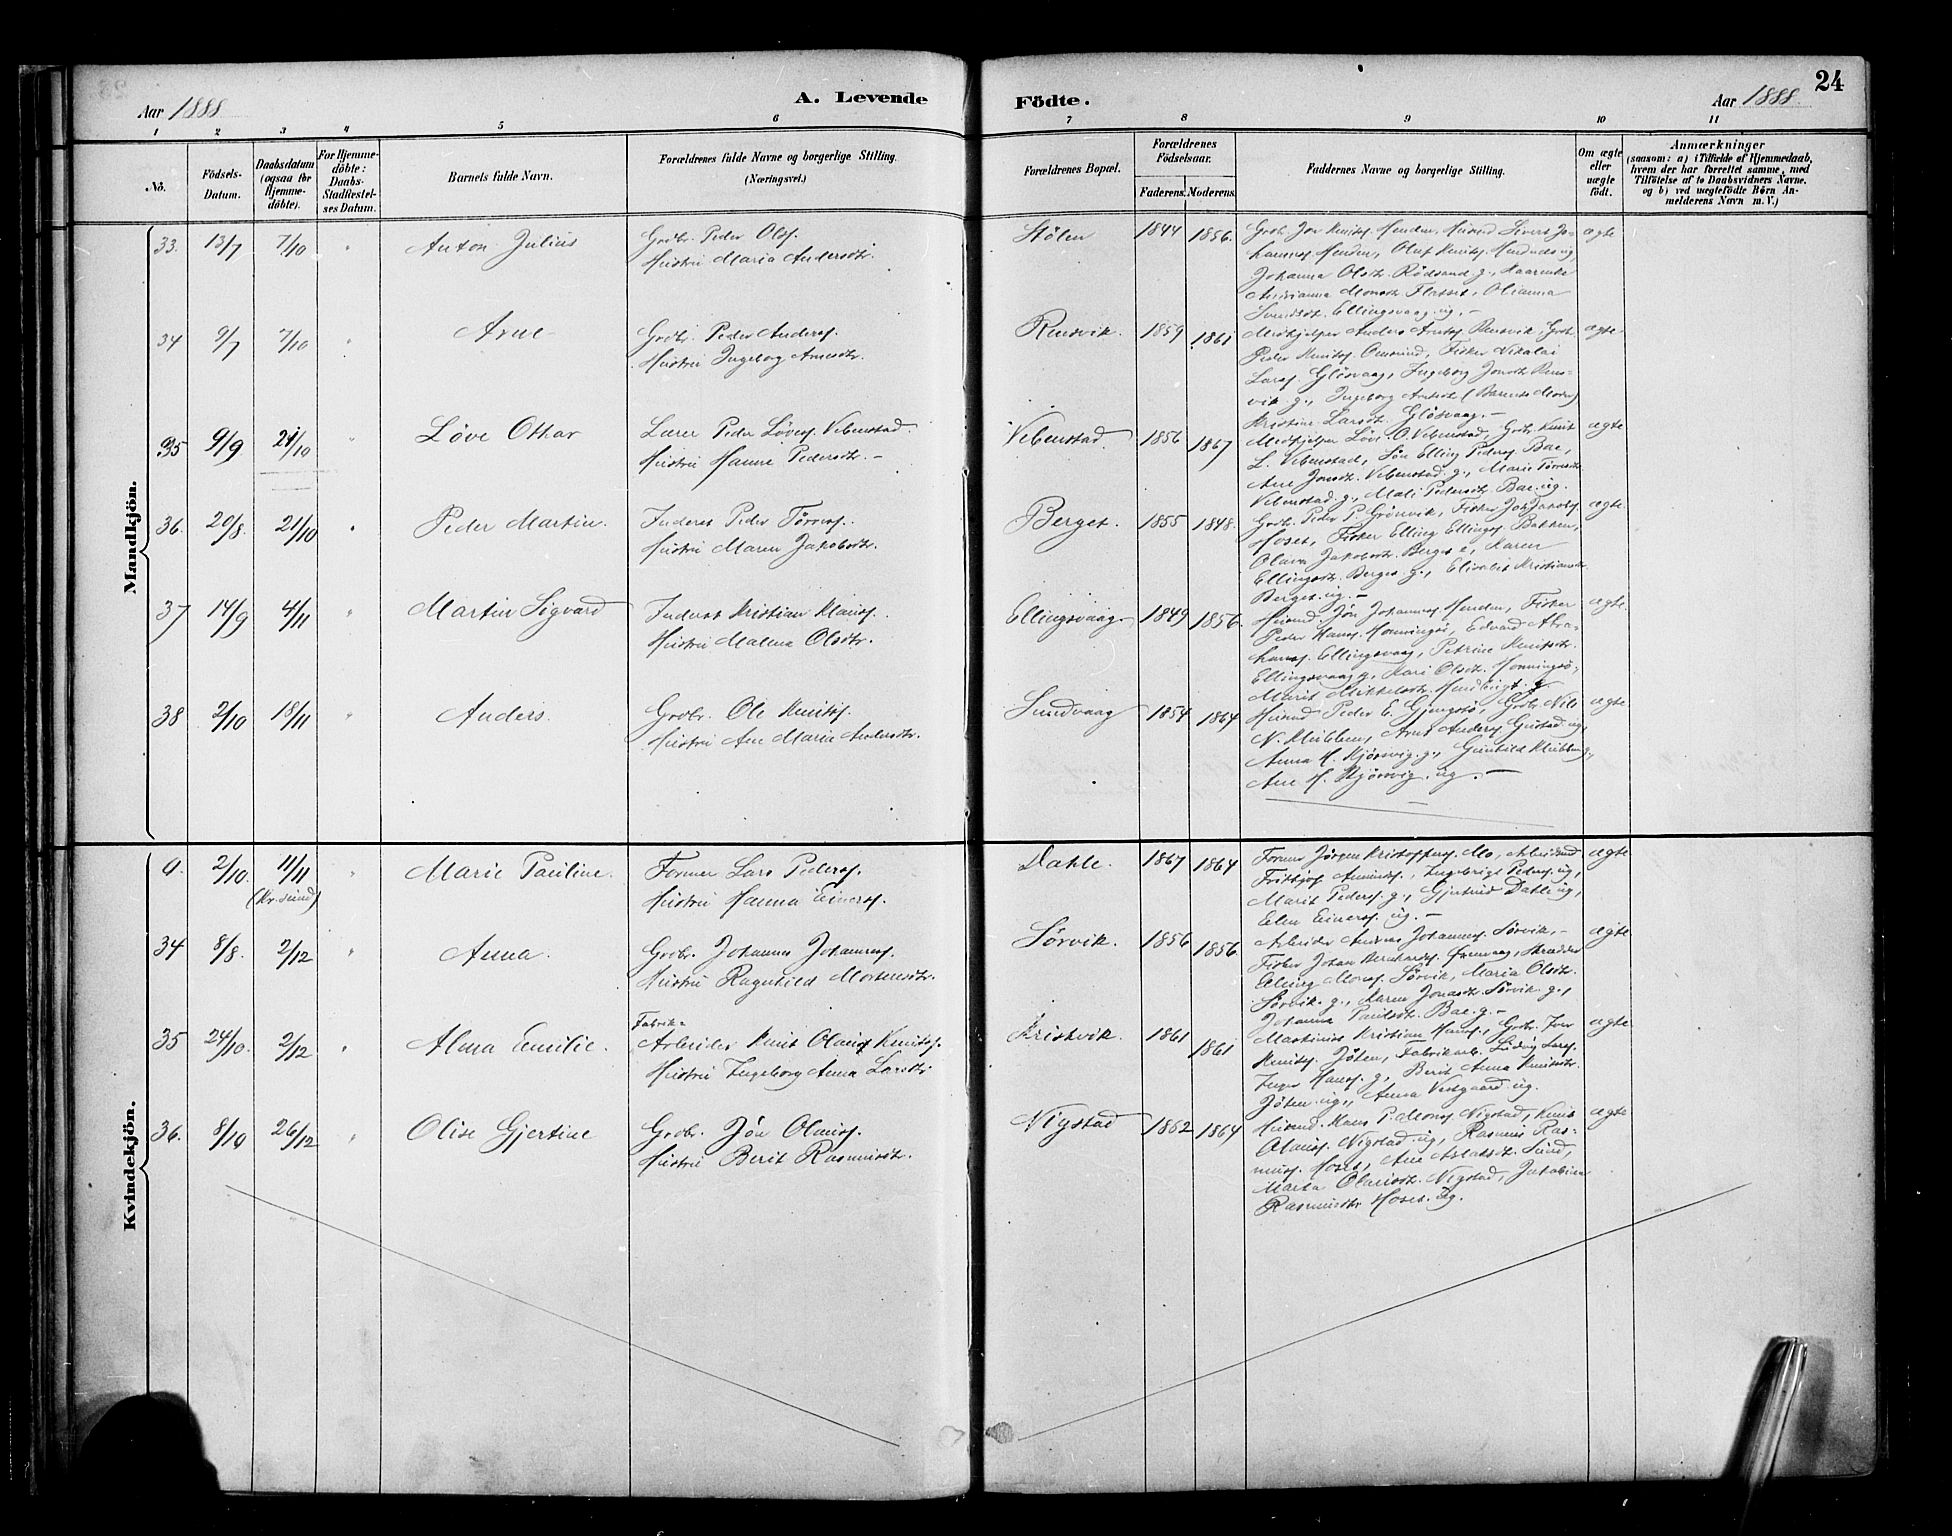 24
Aar 1888
A. Levende Födte.
Aar 1888.
1 2 3 4 5 6 7 8 9 10 11
No.
Födsels-Datum.
Daabsdatum (ogsaa for Hjemmedöbte).
For Hjemmedöbte: Daabs-Stadfæstelses Datum.
Barnets fulde Navn.
Forældrenes fulde Navne og borgerlige Stilling. (Næringsvei.)
Forældrenes Bopæl.
Forældrenes Födselsaar.
Faderens. Moderens.
Faddernes Navne og borgerlige Stilling.
Om ægte eller uægte födt.
Anmærkninger
(saasom: a) i Tilfælde af Hjemmedaab,
hvem der har forrettet samme, med
Tilföielse af to Daabsvidners Navne,
og b) ved uægtefödte Börn An-
melderens Navn m. V.)
Mandkjön.
33. 13/7 7/10 " Anton Julius
Grdbr. Peder Olss.
Hustru Maria Andersdtr.
Stølen 1844 1856.
Grdb. Jon Knuts. Henden, Husmd Sivert Jo-
hanns. Henden, Oluf Knuts.
Johanna Olsdtr. Rødsand g.,
Monsdtr. Flasset, Olianna
Ellingsvaag ug. -
ægte
34 9/7 7/10 " Arne
Grdbr. Peder Anders.
Hustru Ingeborg Arnesdtr.
Rensvik. 1859 1861
Medhjelper Anders Arntss. Rensvik, Grdb.
Peder Knuts. Omsund, Fisker Nikolai
Larss. Gløsvaag, Ingeborg Jonsdtr. Rens-
vik g., Ingeborg (Barnets Moder)
Kristine Larsdt. Gløsvaag. -
ægte
35 9/9 21/10 " Løve Othar
Lærer Peder Løves. Vebenstad.
Hustru Hanna Pedersdtr. -
Vebenstad 1856 1867
Medhjelper Løve O. Vebenstad, Grdb. Knut
L. Vebenstad, Søn Elling Peders. Bae,
Ane Jonsdt. Vebenstad g., Marie
Vebenstad g., Mali Pedersdt. Bae ug.
ægte
36. 20/8. 21/10 " Peder Martin.
Inderst Peder Tørress.
Hustru Maren Jakobsdtr.
Berget. 1855 1848.
Grdb. Peder P. Grønvik, Fisker Jon Jakobs.
Hoset, Fisker Elling Ellings. Bakken,
Olava Jakobsdt. Berget e, Karen
Ellingsdt. Berget g., Elisabet Kristiansdt.
Berget ug. -
ægte.
37 14/9 4/11 " Martin Sigvard
Inderst Kristian Klauss.
Hustru Malena Olsdtr.
Ellingsvaag. 1849 1856.
Husmd. Jon Johannes. Henden, Fisker
Peder Hanss. Honningsø, Edvard Abra-
hams. Ellingsvaag, Petrine Knutsdt.
Ellingsvaag g., Kari Olsdt. Honningsø,
Marit Mikkelsdt.
ægte.
38 2/10 18/11 " Anders.
Grdbr. Ole Knuts.
Hustru Ane Marie Andersdtr.
Sundvaag 1854 1864
Husmd Peder E. Gjengstø, Grdb. Nils
N. Klubben, Arnt Anders. Gustad ug,
Anna H. Kjørsvig. g., Gunhild Klubben g.,
Ane H. Kjørsvig. ug. -
ægte
Kvindekjön.
2/10. 11/11 (Kr.sund) " Marie Pauline.
Former Lars Peders.
Hustru Hanna Einers.
Dahle. 1867 1864
Former Jørgen Kristoffers. Mo, Arbeidsmd
Frithjof, Ingebrigt Peders. ug,
Marit Peders. g., Gjertrud Dahle ug,
Elen Einers. ug. -
ægte
34 8/8. 2/12 " Anna.
Grdbr. Johannes Johanness.
Hustru Ragnhild Mortensdtr.
Sørvik. 1856 1856
Arbeider Anders Johannes. Sørvik, -
Fisker Johan Bernhards., Skrædder
Elling Monss. Sørvik, Maria Olsdt.
Sørvik. g., Karen Jonasdt. Sørvik g.,
Johanna Paulsdt. Bae. g. -
ægte
35 24/10. 2/12 " Alma Emilie.
Fabrik-
Arbeider Knut Olaus Knuts.
Hustru Ingeborg Anna Larsdtr
Kristvik. 1861 1861
Martinus Kristian Hanss., Grdb. Iver
Knuts. Jøten, Fabrikarb. Ludvig Larss.
Inger Hanss. g., Berit Anna Knutsdtr.
Jøten ug., Anna Vestgaard ug.
ægte
36. 8/10 26/12 " Olise Gjertine
Grdbr. Jon Olauss.
Hustru Berit Rasmusdt.
Nigstad 1862 1864
Husmd. Hans P. Monss. Nigstad, Knut
Olauss. Nigstad ug, Rasmus Ras-
muss. Hoset, Ane Aslaksdt. Sund,
Marta Olausdtr. Nigstad, Jakobine
Rasmusdtr Hoset ug.
ægte